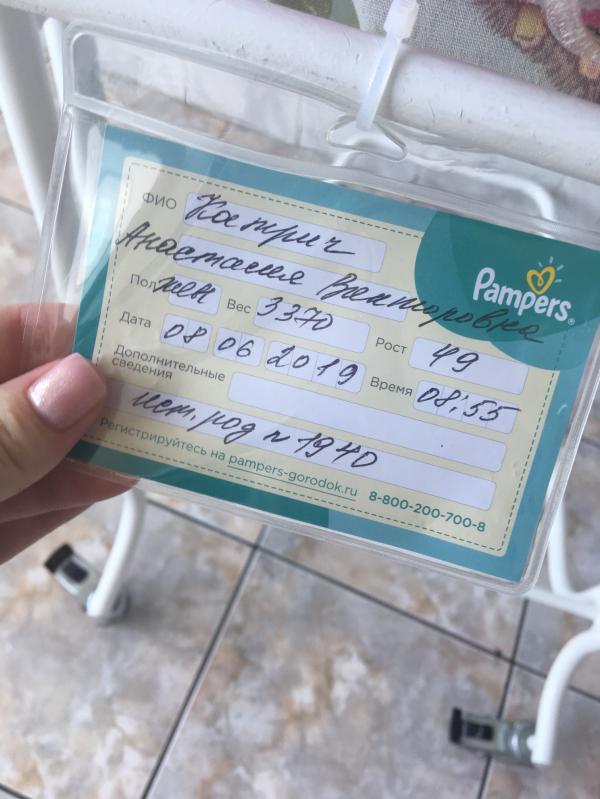 ФИО Кострич
Анастасия Викторовна
Pampers®
Пол жен Вес 3370 Рост 49
Дата 08 06 2019 Время 08:55
Дополнительные
сведения
ист. род № 1940
Регистрируйтесь на pampers-gorodok.ru 8-800-200-700-8